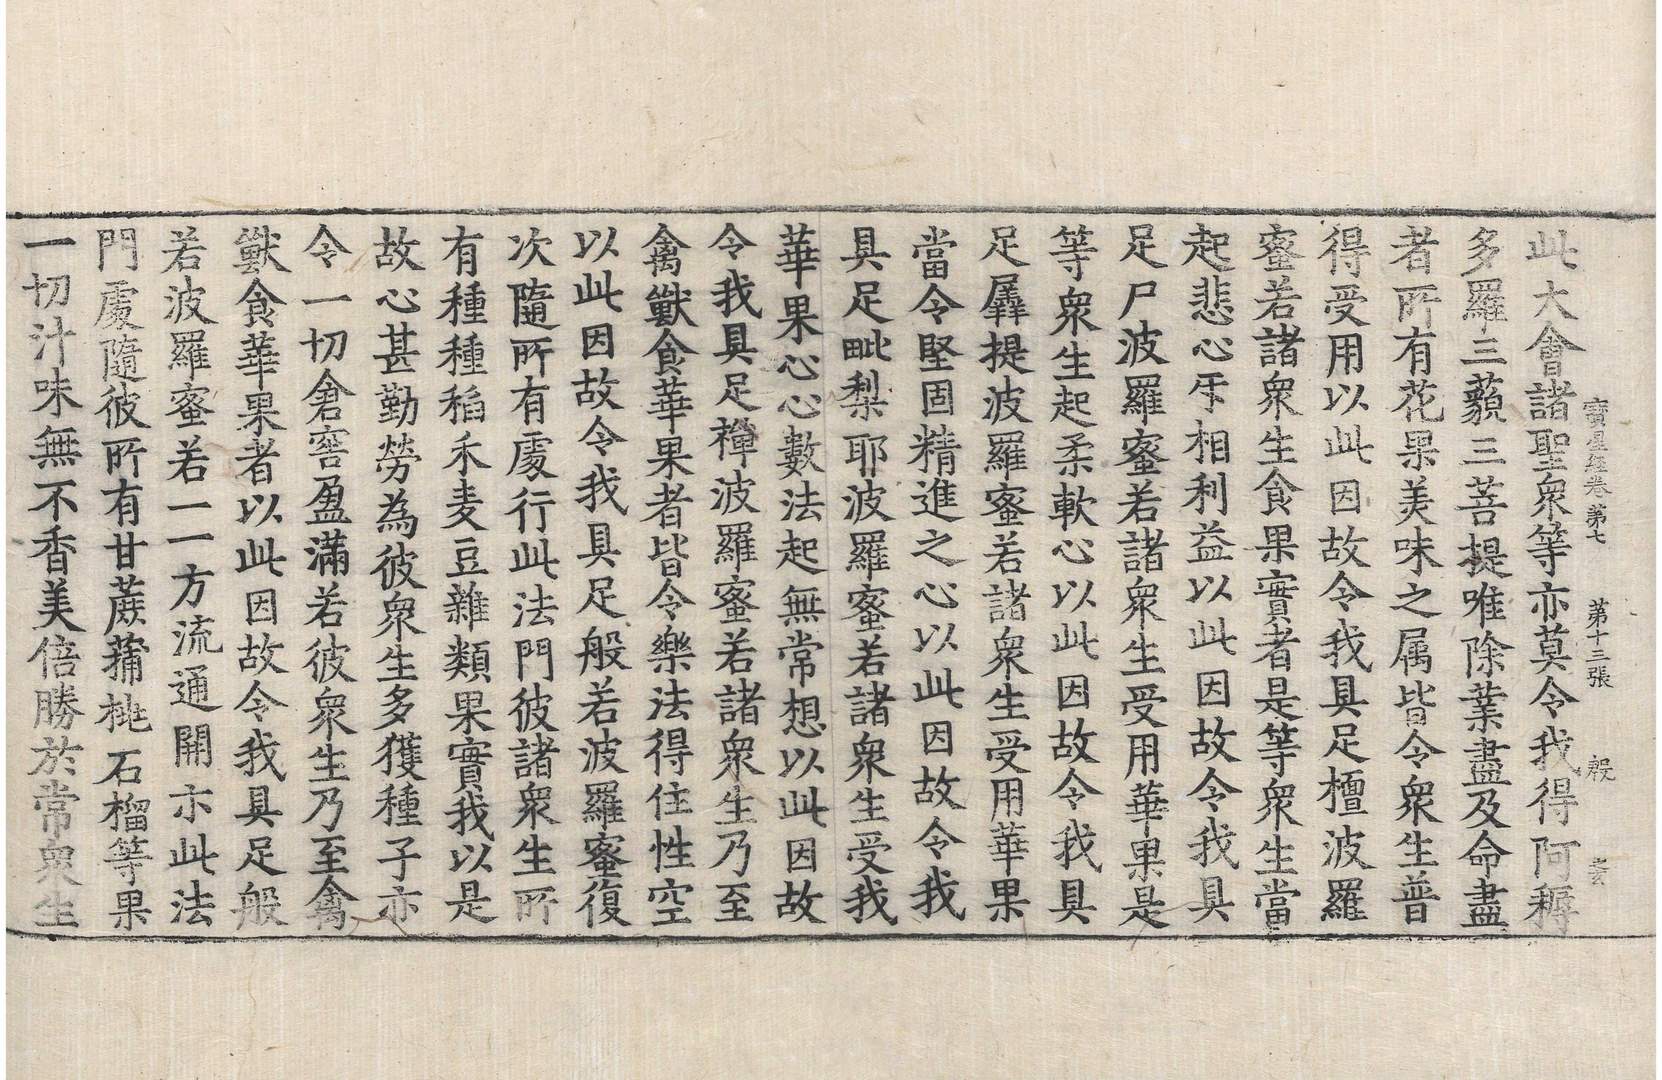 寶星経卷第七　第十三張　彂
此大會諸聖衆等亦莫令我得阿耨
多羅三藐三菩提唯除業盡及命盡
者所有花果美味之属皆令衆生普
得受用以此因故令我具足檀波羅
蜜若諸衆生食果實者是等衆生當
起悲心㸦相利益以此因故令我具
足尸波羅蜜若諸衆生受用華果是
等衆生起柔軟心以此因故令我具
足羼提波羅蜜若諸衆生受用華果
當令堅固精進之心以此因故令我
具足毗梨耶波羅蜜若諸衆生受我
華果心心數法起無常想以此因故
令我具足禪波羅蜜若諸衆生乃至
禽獸食華果者皆令樂法得住性空
以此因故令我具足般若波羅蜜復
次隨所有處行此法門彼諸衆生所
有種種稻禾麦豆雜類果實我以是
故心甚勤勞為彼衆生多獲種子亦
令一切倉窖盈滿若彼衆生乃至禽
獸食華果者以此因故令我具足般
若波羅蜜若一一方流通開示此法
門處隨彼所有甘蔗蒱桃石榴等果
一切汁味無不香美倍勝於常衆生